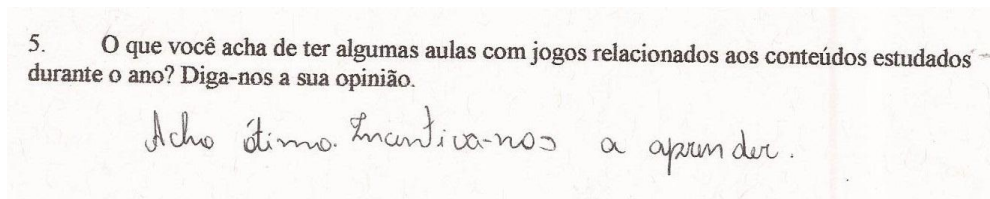 5. O que você acha de ter algumas aulas com jogos relacionados aos conteúdos estudados
durante o ano? Diga-nos a sua opinião.
Acho ótimo. Incentiva-nos a aprender.